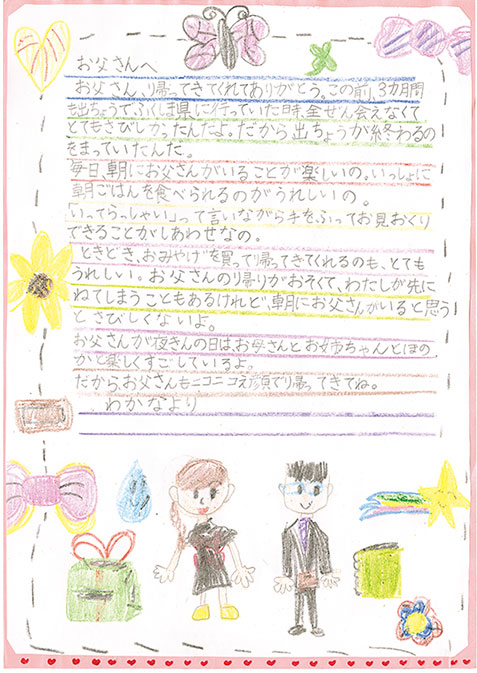 お父さんへ
お父さん、帰ってきてくれてありがとう。この前、3カ月間
出ちょうで、ふくしま県に行っていた時、全ぜん会えなくて
とてもさびしかったんだよ。だから出ちょうが終わるの
をまっていたんだ。
毎日、朝にお父さんがいることが楽しいの。いっしょに
朝ごはんを食べられるのがうれしいの。
「いってらっしゃい」って言いながら手をふってお見おくり
できることがしあわせなの。
ときどき、おみやげを買って帰ってきてくれるのも、とても
うれしい。お父さんの帰りがおそくて、わたしが先に
ねてしまうこともあるけれど、朝にお父さんがいると思う
とさびしくないよ。
お父さんが夜きんの日は、お母さんとお姉ちゃんとほの
かと楽しくすごしているよ。
だから、お父さんもニコニコえ顔で帰ってきてね。
わかなより